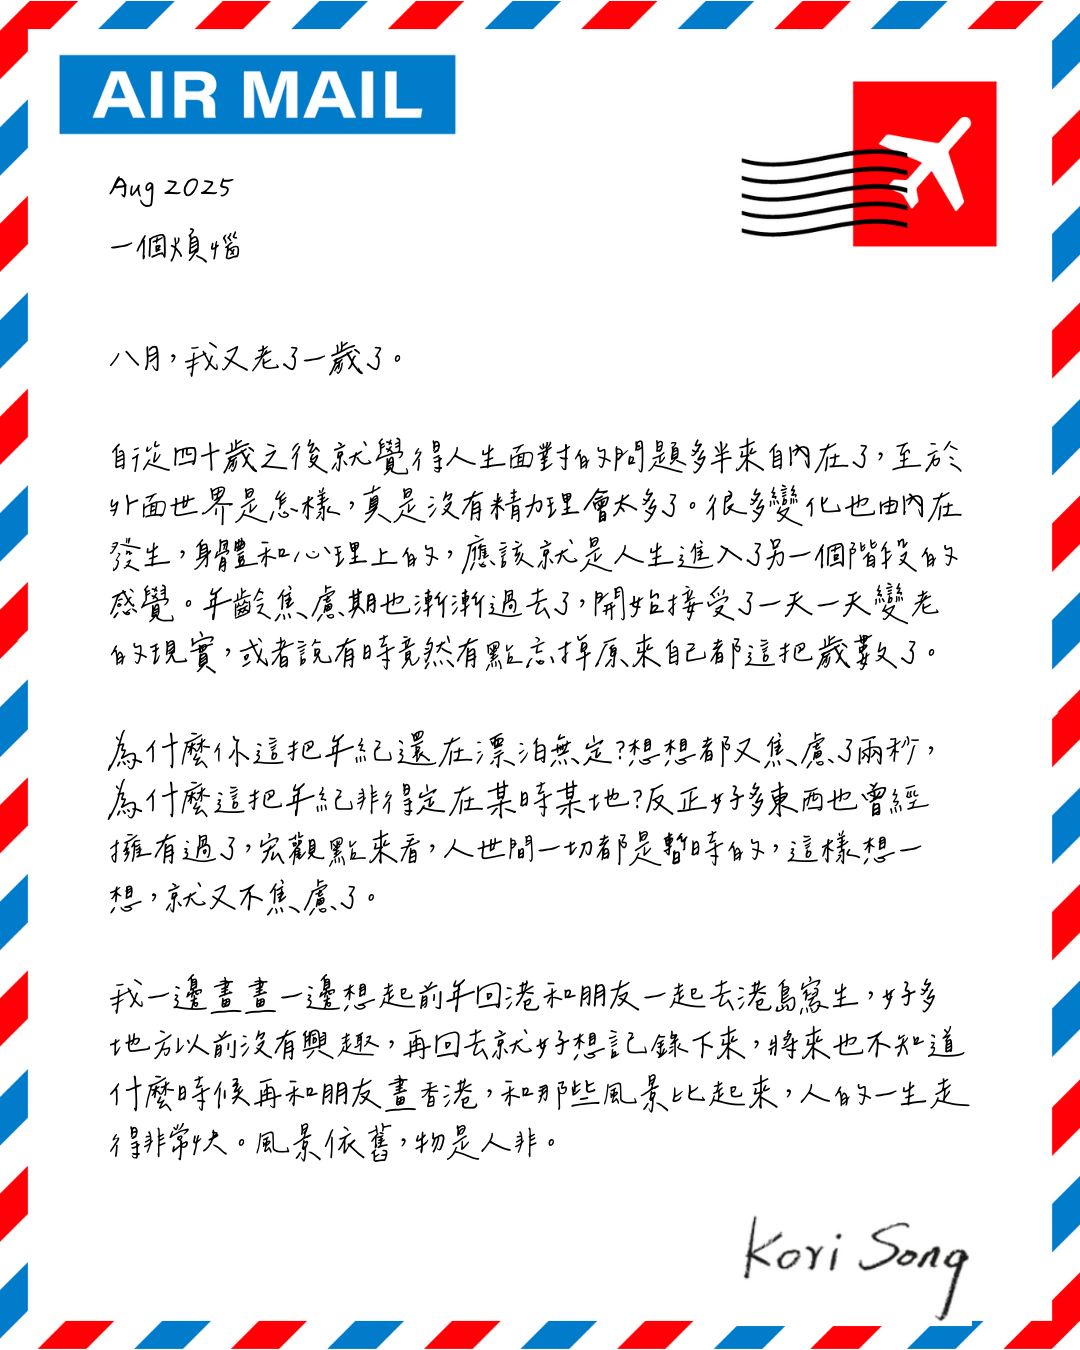 AIR MAIL
Aug 2025
一個煩惱
八月，我又老了一歲了。
自從四十歲之後就覺得人生面對的問題多半來自內在了，至於
外面世界是怎樣，真是沒有精力理會太多了。很多變化也由內在
發生，身體和心理上的，應該就是人生進入了另一個階段的
感覺。年齡焦慮期也漸漸過去了，開始接受了一天一天變老
的現實，或者說有時竟然有點忘掉原來自己都這把歲數了。
為什麼你這把年紀還在漂泊無定？想想都又焦慮了兩秒，
為什麼這把年紀非得定在某時某地？反正好多東西也曾經
擁有過了，宏觀點來看，人世間一切都是暫時的，這樣想一
想，就又不焦慮了。
我一邊畫畫一邊想起前年回港和朋友一起去港島寫生，好多
地方以前沒有興趣，再回去就好想記錄下來，將來也不知道
什麼時候再和朋友畫香港，和那些風景比起來，人的一生走
得非常快。風景依舊，物是人非。
Kori Song